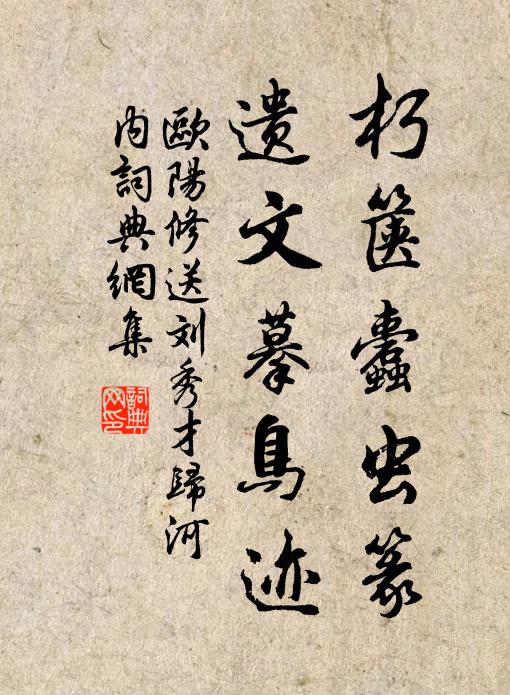 朽箧蠹虫篆
遗文摹鳥迹
歐陽修送刘秀才歸河
内詞典網集
詞典
网印